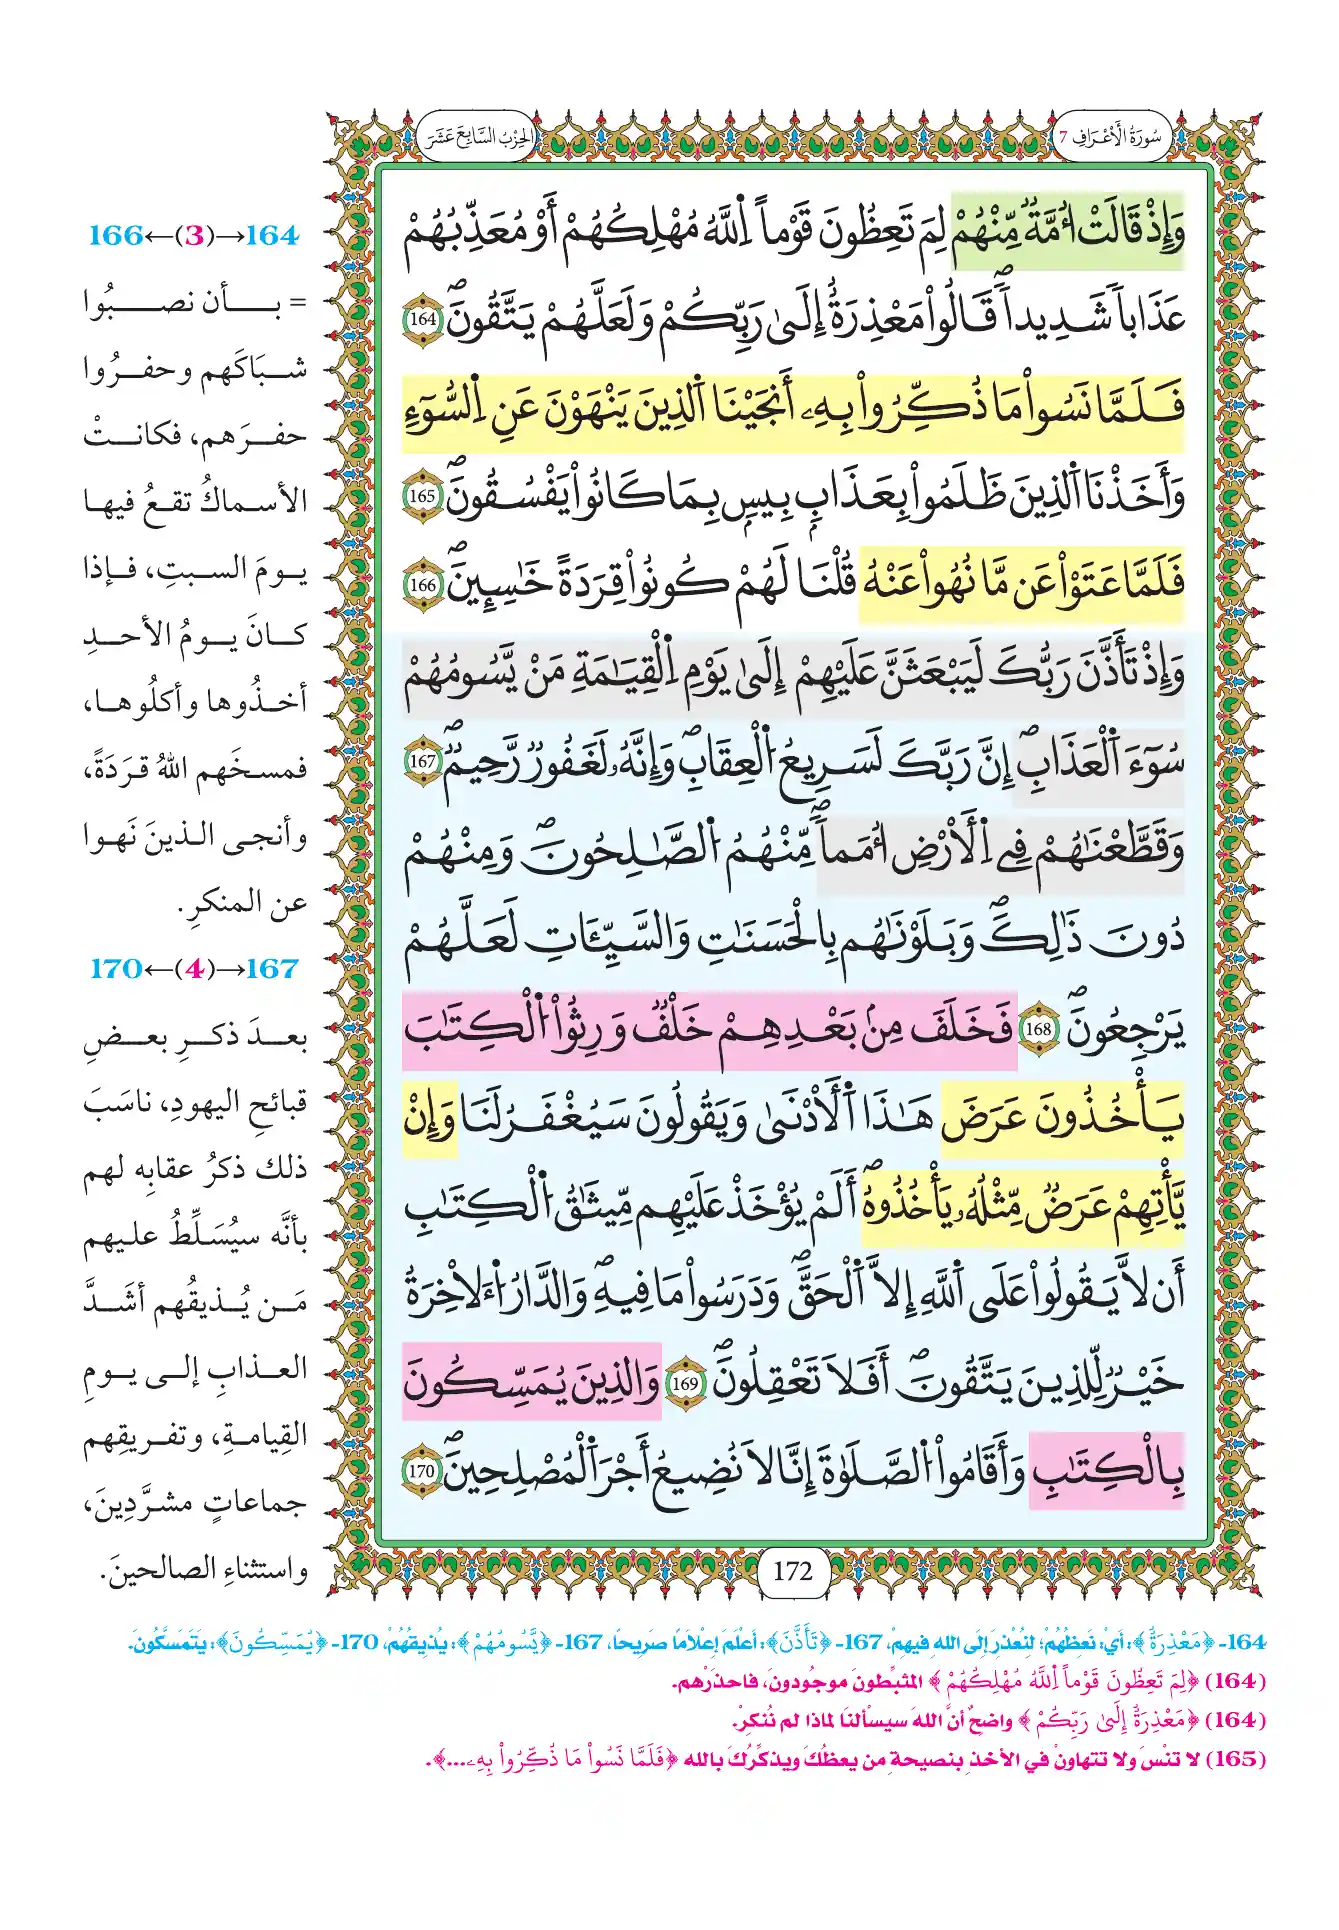 سُورَةُ الْأَعْرَافِ 7
الحِزْبُ السَّابِعَ عَشَرَ
وَإِذْ قَالَتُ ا۟مَّةٌ مِّنْهُمْ لِمَ تَعِظُونَ قَوْماً اِ۬للَّهُ مُهْلِكُهُمْ أَوْ مُعَذِّبُهُمْ
عَذَاباٗ شَدِيداٗۖ قَالُواْ مَعْذِرَةٌ إِلَىٰ رَبِّكُمْ وَلَعَلَّهُمْ يَتَّقُونَۖ 164
فَلَمَّا نَسُواْ مَا ذُكِّرُواْ بِهِۦٓ أَنجَيْنَا اَ۬لذِينَ يَنْهَوْنَ عَنِ اِ۬لسُّوٓءِ
وَأَخَذْنَا اَ۬لذِينَ ظَلَمُواْ بِعَذَابِۢ بِيسِۢ بِمَا كَانُواْ يَفْسُقُونَۖ 165
فَلَمَّا عَتَوْاْ عَن مَّا نُهُواْ عَنْهُ قُلْنَا لَهُمْ كُونُواْ قِرَدَةً خَٰسِـِٕينَۖ 166
وَإِذْ تَأَذَّنَ رَبُّكَ لَيَبْعَثَنَّ عَلَيْهِمْ إِلَىٰ يَوْمِ اِ۬لْقِيَٰمَةِ مَنْ يَّسُومُهُمْ
سُوٓءَ اَ۬لْعَذَابِۖ إِنَّ رَبَّكَ لَسَرِيعُ اُ۬لْعِقَابِۖ وَإِنَّهُۥ لَغَفُورٞ رَّحِيمٞۖ 167
وَقَطَّعْنَٰهُمْ فِے اِ۬لْأَرْضِ أُمَماٗۖ مِّنْهُمُ اُ۬لصَّٰلِحُونَۖ وَمِنْهُمْ
دُونَ ذَٰلِكَۖ وَبَلَوْنَٰهُم بِالْحَسَنَٰتِ وَالسَّيِّـَٔاتِ لَعَلَّهُمْ
يَرْجِعُونَۖ 168 فَخَلَفَ مِنۢ بَعْدِهِمْ خَلْفٞ وَرِثُواْ اُ۬لْكِتَٰبَ
يَأْخُذُونَ عَرَضَ هَٰذَا اَ۬لْأَدْنَىٰ وَيَقُولُونَ سَيُغْفَرُ لَنَا وَإِنْ
يَّأْتِهِمْ عَرَضٞ مِّثْلُهُۥ يَأْخُذُوهُۖ أَلَمْ يُؤْخَذْ عَلَيْهِم مِّيثَٰقُ اُ۬لْكِتَٰبِ
أَن لَّا يَقُولُواْ عَلَى اَ۬للَّهِ إِلَّا اَ۬لْحَقَّۖ وَدَرَسُواْ مَا فِيهِۖ وَالدَّارُ اُ۬لَاخِرَةُ
خَيْرٞ لِّلذِينَ يَتَّقُونَۖ أَفَلَا تَعْقِلُونَۖ 169 وَالذِينَ يُمَسِّكُونَ
بِالْكِتَٰبِ وَأَقَامُواْ اُ۬لصَّلَوٰةَ إِنَّا لَا نُضِيعُ أَجْرَ اَ۬لْمُصْلِحِينَۖ 170
172
164→(3)←166
= بأن نصبُوا
شبَاكَهم وحفرُوا
حفرَهم، فكانتْ
الأسماكُ تقعُ فيها
يومَ السبتِ، فإذا
كانَ يومُ الأحدِ
أخذُوها وأكلُوها،
فمسخَهم اللهُ قرَدَةً،
وأنجى الذينَ نَهوا
عن المنكرِ.
167→(4)←170
بعدَ ذكرِ بعضِ
قبائحِ اليهودِ، ناسَبَ
ذلك ذكرُ عقابِه لهم
بأنَّه سيُسَلِّطُ عليهم
مَن يُذيقُهم أشَدَّ
العذابِ إلى يومِ
القِيامةِ، وتفريقِهم
جماعاتٍ مشرَّدِينَ،
واستثناءِ الصالحينَ.
164- ﴿مَعْذِرَةٌ﴾: أيْ: نَعِظُهُمْ؛ لِنُعْذِرَ إلَى اللهِ فِيهِمْ، 167- ﴿تَأَذَّنَ﴾: أعْلَمَ إعْلَامًا صَرِيحًا، 167- ﴿يَّسُومُهُمْ﴾: يُذِيقُهُمْ، 170- ﴿يُمَسِّكُونَ﴾: يَتَمَسَّكُونَ.
(164) ﴿لِمَ تَعِظُونَ قَوْماً اِ۬للَّهُ مُهْلِكُهُمْ﴾ المثبِّطونَ موجُودونَ، فاحذَرْهم.
(164) ﴿مَعْذِرَةٌ إِلَىٰ رَبِّكُمْ﴾ واضحٌ أنَّ اللهَ سيسألُنَا لماذا لم نُنكرْ.
(165) لا تنْسَ ولا تتهاونْ في الأخذِ بنصيحةِ من يعظُكَ ويذكِّرُكَ بالله ﴿فَلَمَّا نَسُواْ مَا ذُكِّرُواْ بِهِۦ...﴾.